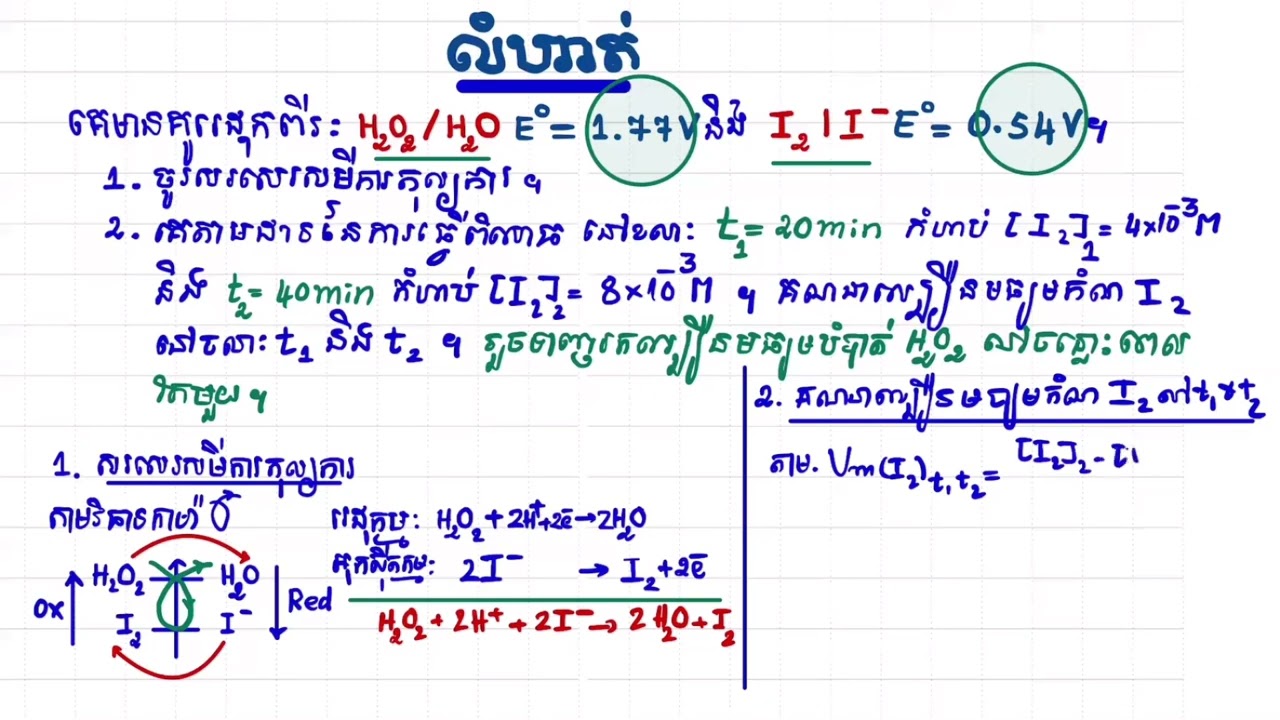 លំហាត់
គេមានគូរេដុកពីរ: H₂O₂/H₂O E°= 1.77V និង I₂ | I⁻ E°= 0.54V ។
1. ចូរសរសេរសមីការតុល្យការ ។
2. គេតាមដាននៃការធ្វើពិសោធ នៅខណៈ t₁= 20min កំហាប់ [I₂]₁= 4×10⁻³M
និង t₂= 40min កំហាប់ [I₂]₂= 8×10⁻³M ។ គណនាល្បឿនមធ្យមកំណ I₂
នៅចន្លោះ t₁ និង t₂ ។ រួចទាញរកល្បឿនមធ្យមបំបាត់ H₂O₂ នៅចន្លោះពេល
តែមួយ ។
1. សរសេរសមីការតុល្យការ
តាមវិធានកាម៉ា
រេដុកម្ម: H₂O₂ + 2H⁺+2e⁻ → 2H₂O
អុកស៊ីតកម្ម: 2I⁻ → I₂ + 2e⁻
H₂O₂ + 2H⁺ + 2I⁻ → 2H₂O + I₂
H₂O₂ H₂O
Ox Red
I₂ I⁻
2. គណនាល្បឿនមធ្យមកំណ I₂ នៅ t₁ & t₂
តាម. Vm(I₂)t₁t₂ = [I₂]₂ - [I